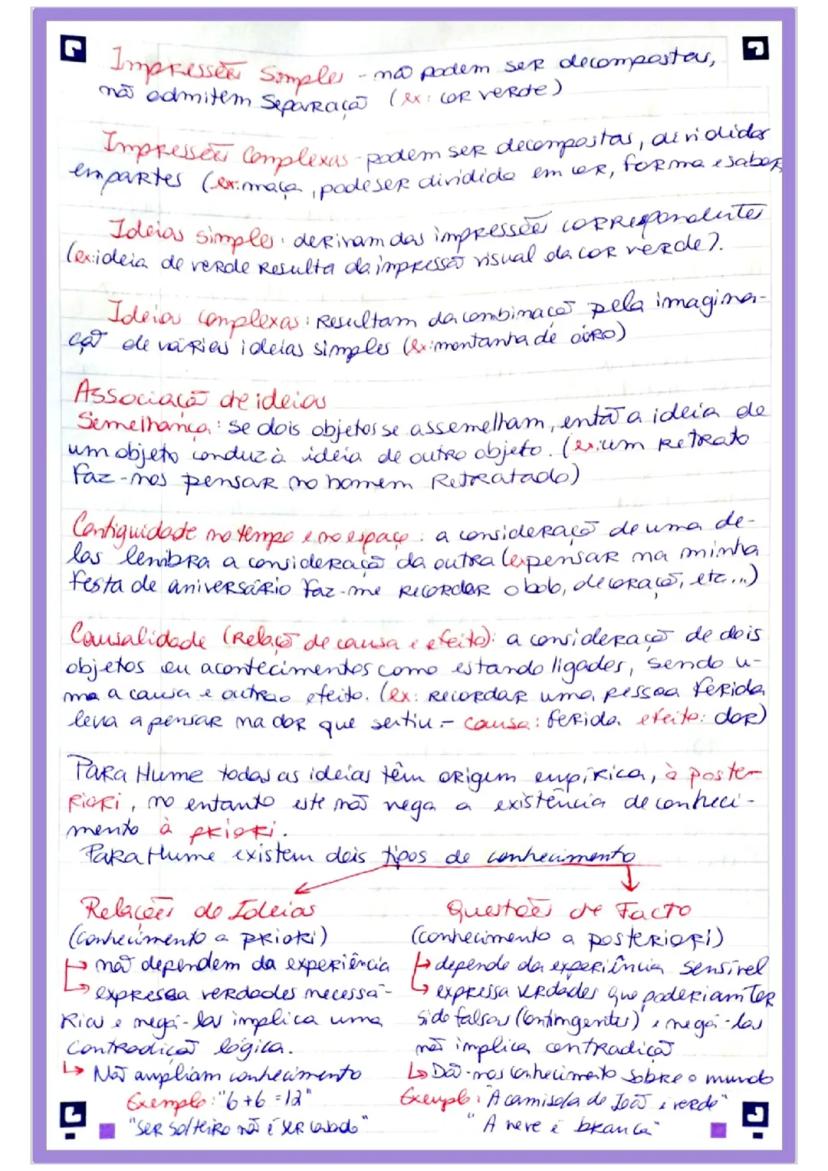 Impressões Simples - não podem ser decompostas,
não admitem separação (ex: cor verde)
Impressões Complexas - podem ser decompostas, divididas
em partes (ex: maçã, pode ser dividida em cor, forma e sabor)
Ideias simples: derivam das impressões correspondentes
(ex: ideia de verde resulta da impressão visual da cor verde).
Ideias complexas: Resultam da combinação pela imagina-
ção de várias ideias simples (ex: montanha de ouro)
Associação de ideias
Semelhança: se dois objetos se assemelham, então a ideia de
um objeto conduz à ideia de outro objeto. (ex: um retrato
faz-nos pensar no homem retratado)
Contiguidade no tempo e no espaço: a consideração de uma de-
las lembra a consideração da outra (ex pensar na minha
festa de aniversário faz-me recordar o bolo, decoração, etc...)
Causalidade (Relação de causa e efeito): a consideração de dois
objetos ou acontecimentos como estando ligados, sendo u-
ma a causa e outra o efeito. (ex: recordar uma pessoa ferida
leva a pensar na dor que sentiu - causa: ferida efeito: dor)
Para Hume todas as ideias têm origem empírica, à poste-
riori, no entanto este não nega a existência de conheci-
mento à priori.
Para Hume existem dois tipos de conhecimento
Relações de Ideias
(conhecimento a priori)
↳ não dependem da experiência
↳ expressa verdades necessá-
rias e negá-las implica uma
contradição lógica.
↳ Não ampliam conhecimento
Exemplo: "6+6=12"
"Ser solteiro não é ser casado"
Questões de Facto
(conhecimento a posteriori)
↳ depende da experiência sensível
↳ expressa verdades que poderiam ter
sido falsas (contingentes) e negá-las
não implica contradição
↳ Dão-nos conhecimento sobre o mundo
Exemplo: "A camisola do João é verde"
"A neve é branca"